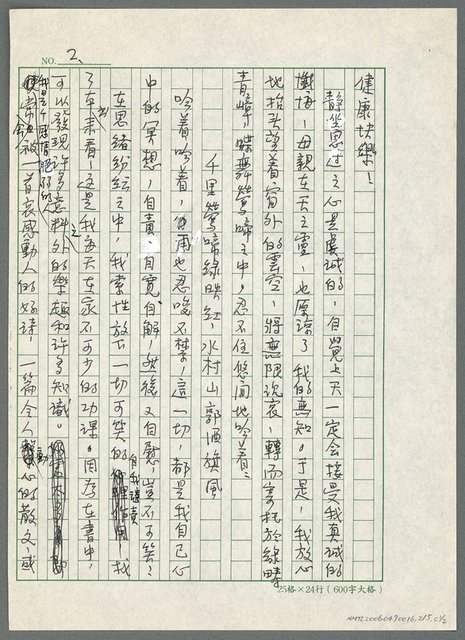 NO. 2
健康快樂！
靜坐思过之心是虔诚的，自覺上天一定会接受我真诚的
懺悔，母親在天之靈，也原諒了我的無知。于是，我放心
地抬头望着窗外的雲空，將無限沉哀，轉而寄托於綠疇
青嶂、蝶舞鶯啼之中，忍不住悠閒地吟着：
千里鶯啼綠映紅，水村山郭酒旗風
吟着吟着，自再也忍唆不禁，這一切，都是我自己心
中的冥想，自責、自寬、自解，然後又自慰，豈不可笑？
在思緒紛紜之中，我索性放下一切可笑的自我譴責，找
了本书來看，这是我每天在家不可少的功課。因为在書中，
可以發現許多意料之外的樂趣和許多知識。
我是个感情脆弱的人
常会被一首哀感動人的好詩，一篇令人動心的散文，或
25格×24行（600字大格）
NMTL20060470016.215.01/2